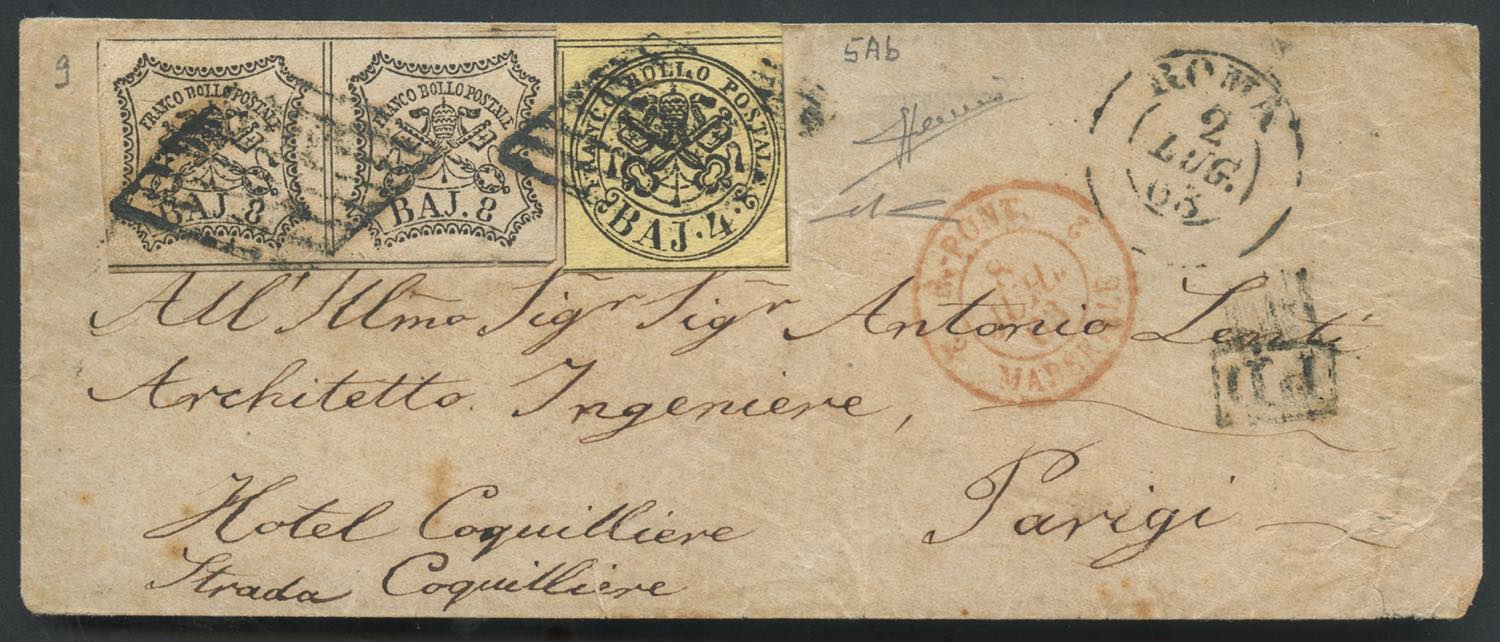 9
5Ab
FRANCO BOLLO POSTALE
BAJ. 8
FRANCO BOLLO POSTALE
BAJ. 8
FRANCO BOLLO POSTALE
BAJ. 4
ROMA
2
LUG.
63
E.-PONT. 2
MARSEILLE 2
PD
All' Illmo Sigr Sigr Antonio Lenti
Architetto Ingeniere,
Parigi
Hotel Coquilliere
Strada Coquilliere